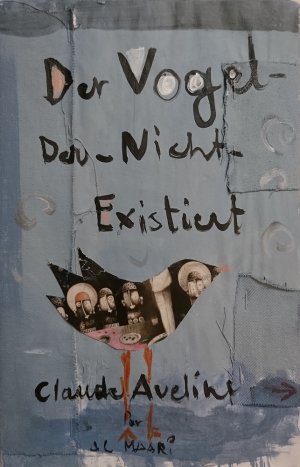 Der Vogel-
Der-Nicht-
Existiert
Claude Aveline
Par
JC MAARI